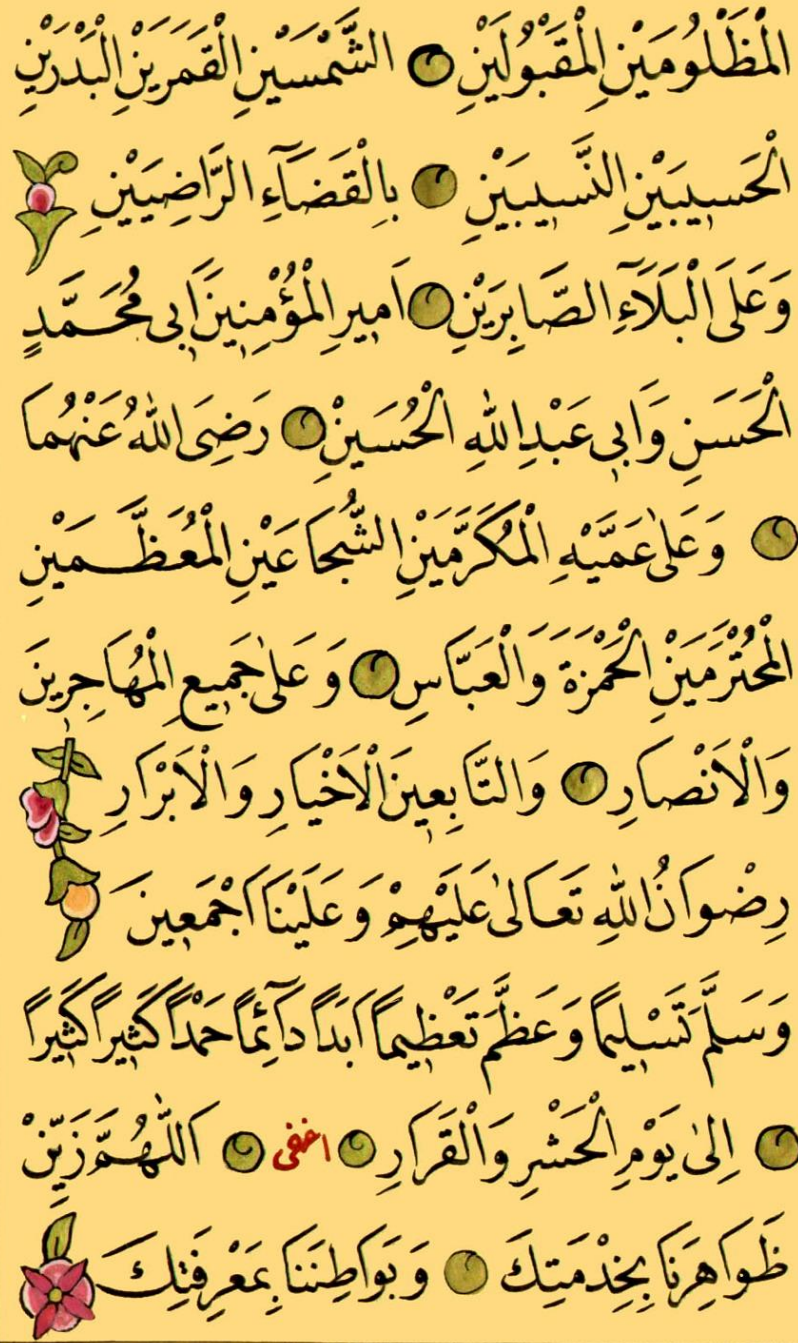 الْمَظْلُومَيْنِ الْمَقْبُولَيْنِ الشَّمْسَيْنِ الْقَمَرَيْنِ الْبَدْرَيْنِ
الْحَسِيبَيْنِ النَّسِيبَيْنِ بِالْقَضَآءِ الرَّاضِيَيْنِ
وَعَلَى الْبَلَآءِ الصَّابِرَيْنِ اَمِيرِ الْمُؤْمِنِينَ اَبِى مُحَمَّدٍ
الْحَسَنِ وَاَبِى عَبْدِ اللّٰهِ الْحُسَيْنِ رَضِىَ اللّٰهُ عَنْهُمَا
وَعَلٰى عَمَّيْهِ الْمُكَرَّمَيْنِ الشُّجَاعَيْنِ الْمُعَظَّمَيْنِ
الْمُحْتَرَمَيْنِ الْحَمْزَةَ وَالْعَبَّاسِ وَعَلٰى جَمِيعِ الْمُهَاجِرِينَ
وَالْاَنْصَارِ وَالتَّابِعِينَ الْاَخْيَارِ وَالْاَبْرَارِ
رِضْوَانُ اللّٰهِ تَعَالٰى عَلَيْهِمْ وَعَلَيْنَا اَجْمَعِينَ
وَسَلَّمَ تَسْلِيمًا وَعَظَّمَ تَعْظِيمًا اَبَدًا دَآئِمًا حَمْدًا كَثِيرًا كَثِيرًا
اِلٰى يَوْمِ الْحَشْرِ وَالْقَرَارِ اخفى اَللّٰهُمَّ زَيِّنْ
ظَوَاهِرَنَا بِخِدْمَتِكَ وَبَوَاطِنَنَا بِمَعْرِفَتِكَ